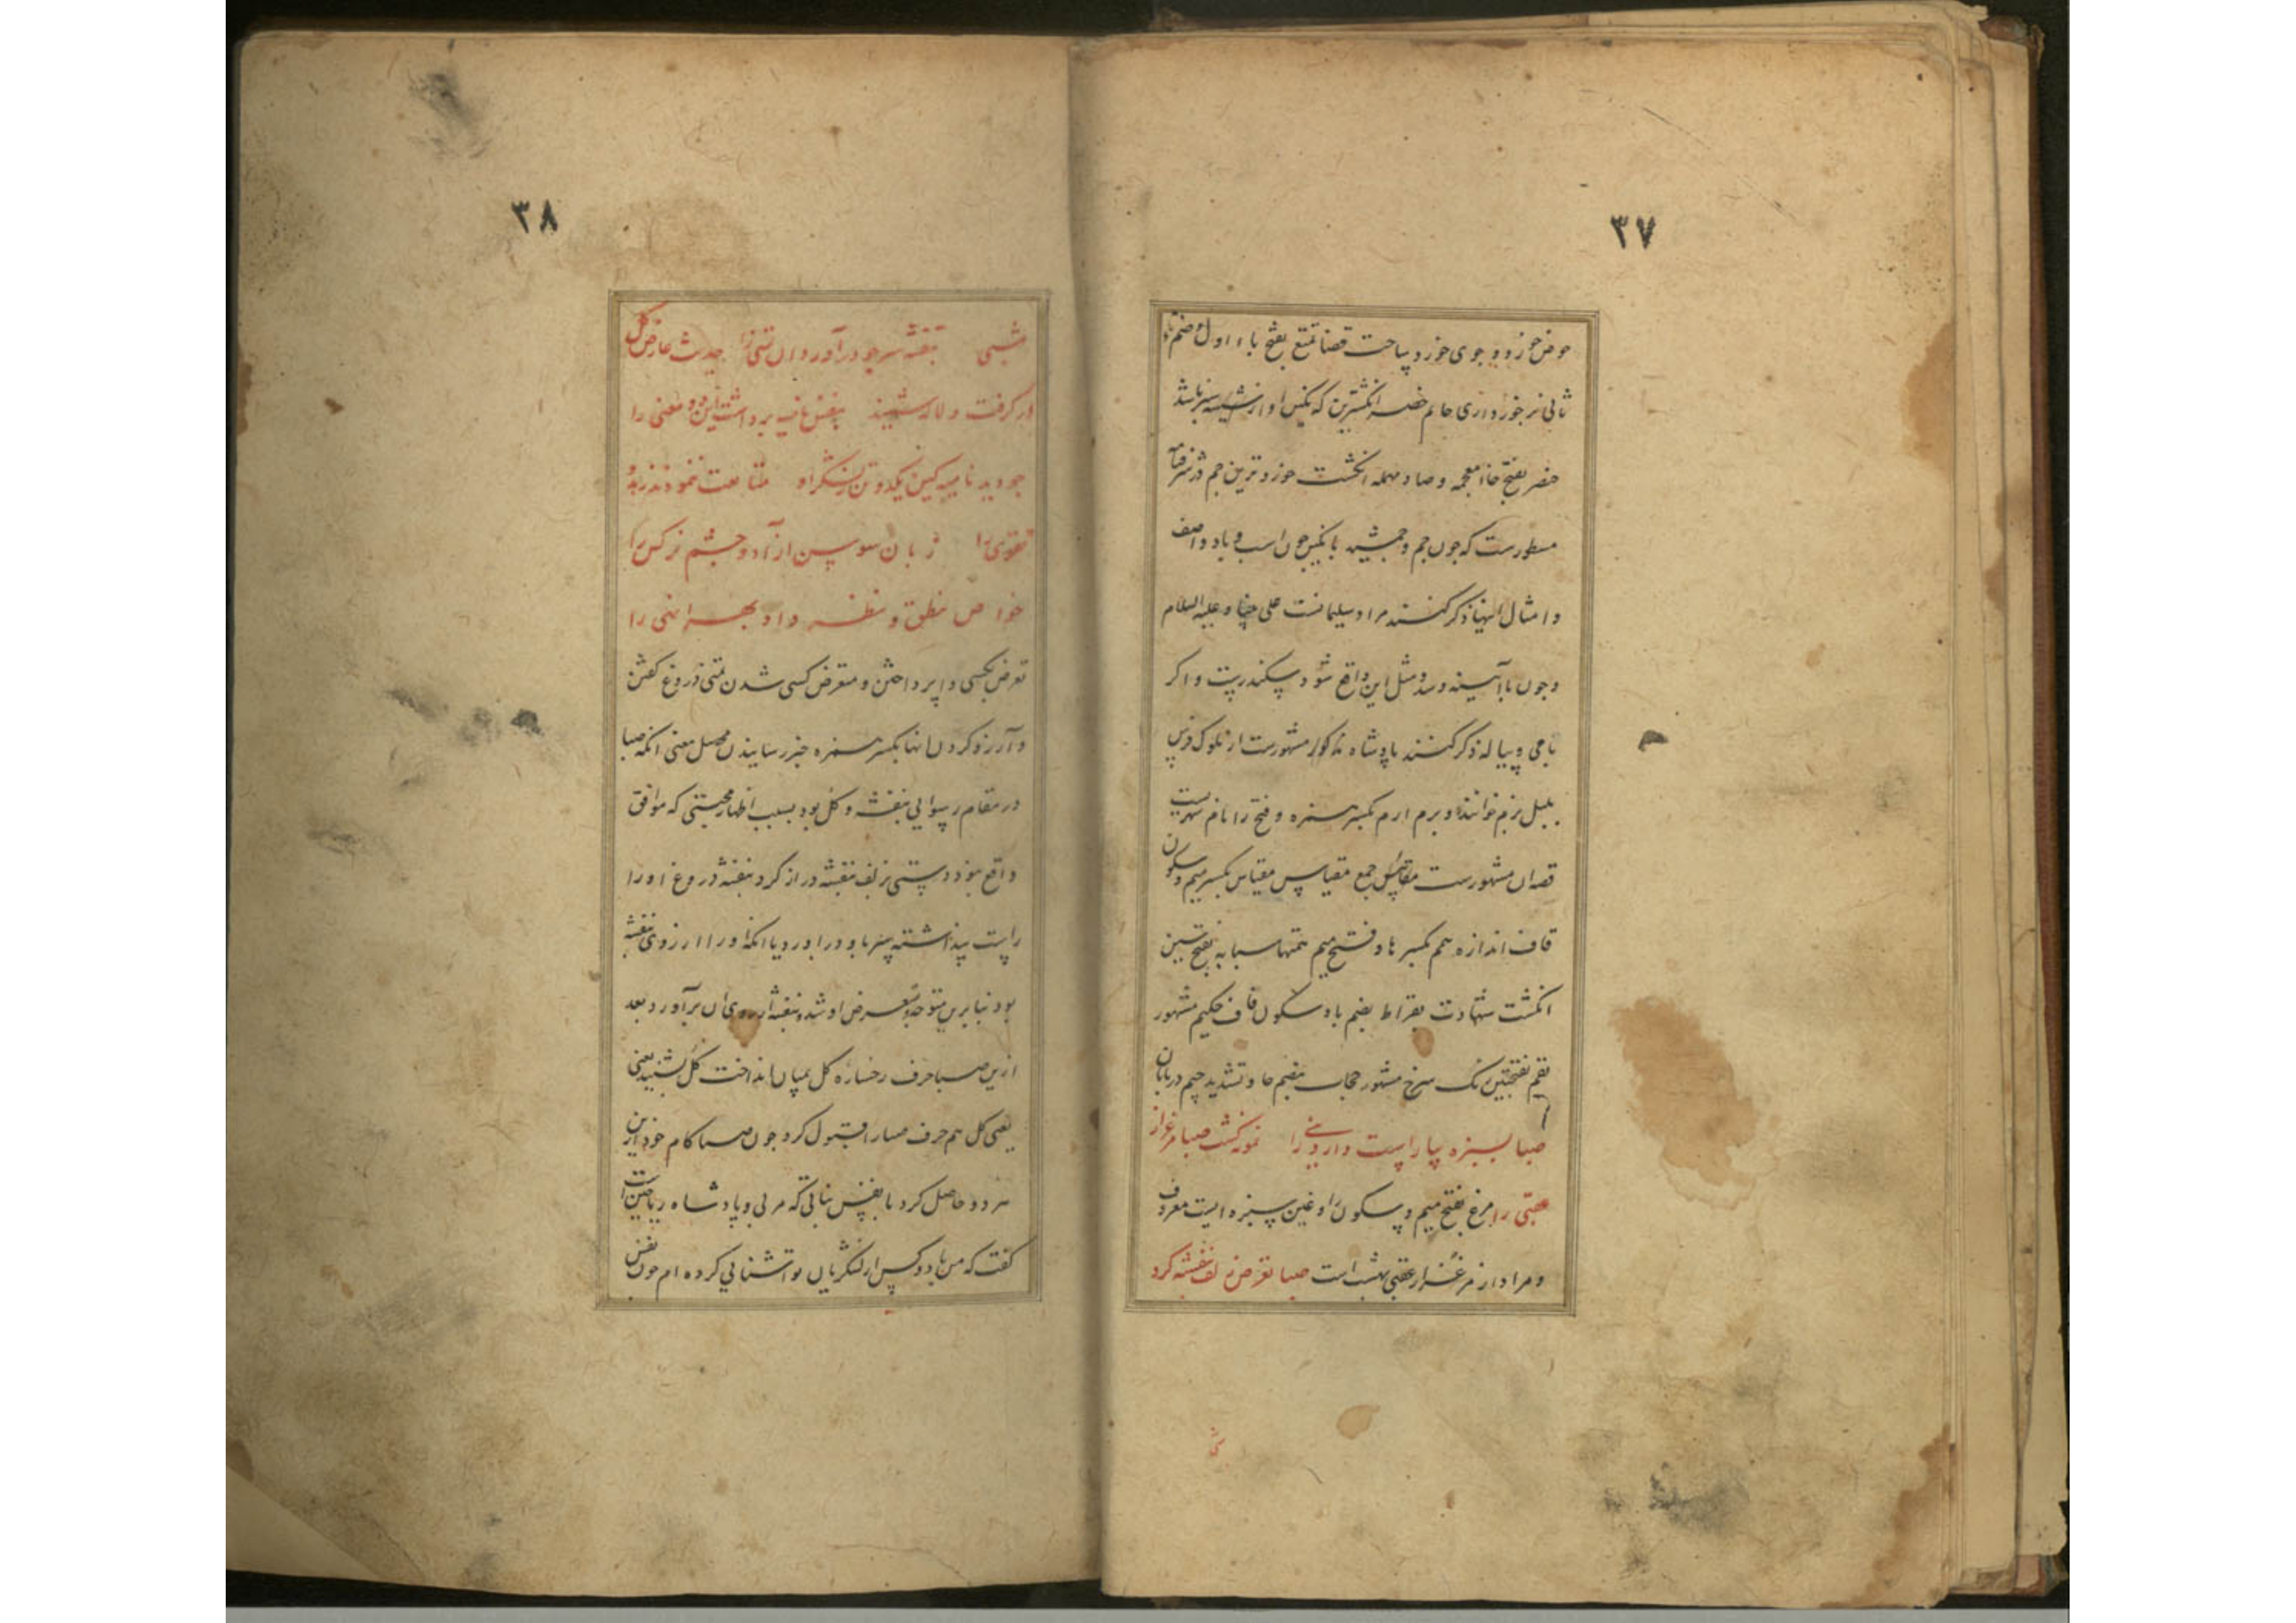 ۳۷
حوض خورد و جوی خورد ساحت قضا تمتع بفتح باء اول و ضم تاء
ثانی برخورداری خاتم خضر انکشترین که نکین او از شیشه سبز باشد
خضر بفتح خاء معجمه و صاد مهمله انکشت خورد ترین جم در
مسطورست که چون جم و جمشید با نکین چون اسب و باد و اصف
و امثال اینها ذکر کنند مراد سلیمانست علی و علیه السلام
و چون با آیینه و سد و مثل این واقع شود سکندرست و اکر
با می و پیاله ذکر کنند پادشاه مذکور مشهورست از ملوک فرس
بلبل بزم خوانند و بزم ارم بکسر همزه و فتح را نام شهریست
قصه ان مشهورست مقاییس جمع مقیاس مقیاس بکسر میم و سکون
قاف اندازه همم بکسر ها و فتح میم همتها سبابه بفتح سین
انکشت شهادت بقراط بضم با و سکون قاف حکیم مشهور
بقم بفتحتین رنک سرخ مشهور حجاب بضم حا و تشدید جیم دربانان
صبا بسبزه بیاراست دار دنیی را نمونه کشت صبا مرغزار
عقبی را مرغ بفتح میم و سکون را و غین سبزه ایست معروف
و مراد از مرغزار عقبی بهشت است صبا تعرض زلف بنفشه کرد
شبی
۳۸
شبی بنفشه سر چو درآورد ان تمنی را حدیث عارض کل
در کرفت و لاله شنید بنفس نامیه برداشت این دو معنی را
چو دید نامیه کین یکدو تن ز لشکر او متابعت ننمودند زهد و
تقوی را زبان سوسن ازاد و چشم نرکس را
خواص نطق و نظر داد بهر انهی را
تعرض بکسی وا پرداختن و معترض کسی شدن تمنی دروغ کفتن
و آرزو کردن انها بکسر همزه خبر رسانیدن محصل معنی انکه صبا
در مقام رسوایی بنفشه و کل بود بسبب اظهار محبتی که موافق
واقع نبود دستی بزلف بنفشه دراز کرد بنفشه دروغ او را
راست پنداشته سر باو دراورد یا انکه او را ارزوی بنفشه
بود بنابرین متوجه تعرض او شد و بنفشه ارزوی ان برآورد بعد
ازین صبا حرف رخساره کل بمیان انداخت کل بشنید یعنی
یعنی کل هم حرف صبا را قبول کرد چون صبا کام خود ازین
هر دو حاصل کرد با نفس نباتی که مربی و پادشاه ریاحین است
کفت که من با دو کس از لشکریان تو آشنایی کرده ام چون نفس